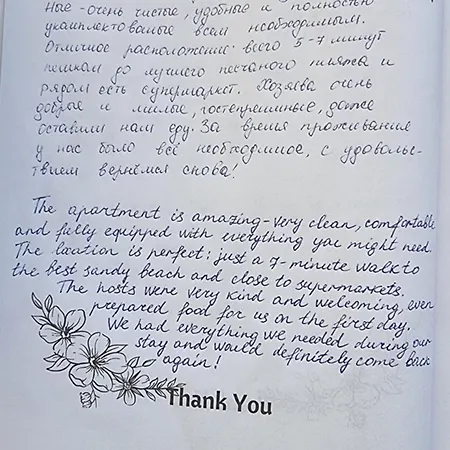 ные - очень чистые, удобные и полностью
укомплектованые всем необходимым.
Отличное расположение: всего 5-7 минут
пешком до лучшего песчаного пляжа и
рядом есть супермаркет. Хозяева очень
добрые и милые, гостеприимные, даже
оставили нам еду. За время проживания
у нас было всё необходимое, с удоволь-
твием вернёмся снова!
The apartment is amazing - very clean, comfortable
and fully equipped with everything you might need.
The location is perfect: just a 7-minute walk to
the best sandy beach and close to supermarkets.
The hosts were very kind and welcoming, even
prepared food for us on the first day.
We had everything we needed during our
stay and would definitely come back
again!
Thank You